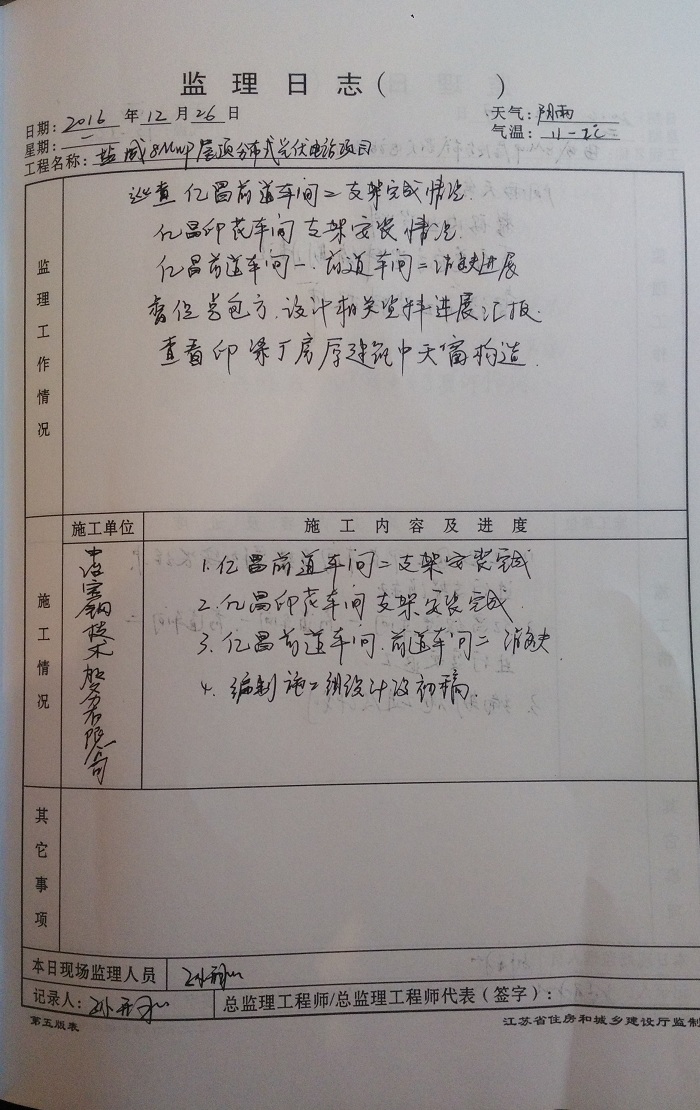 监理日志( )
日期: 2016 年 12 月 26 日 天气: 阴雨
星期: 一 气温:
工程名称: 盐城8MWP屋顶分布式光伏电站项目
监理工作情况
巡查亿昌前道车间二支架完成情况.
亿昌印花车间支架安装情况.
亿昌前道车间一.前道车间二消缺进展
督促总包方.设计相关资料进展汇报.
查看印染厂房厚建筑中天窗构造.
施工情况
施工单位 施工内容及进度
技术服务有限公司
1.亿昌前道车间二支架安装完成
2.亿昌印花车间支架安装完成.
3.亿昌前道车间.前道车间二消缺.
4.编制施工组织设计及初稿.
其它事项
本日现场监理人员
记录人: 总监理工程师/总监理工程师代表(签字):
第五版表 江苏省住房和城乡建设厅监制